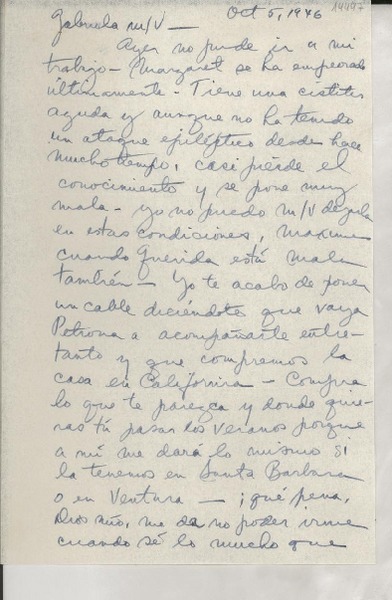 Oct 5, 1946
Gabriela m/V —
Ayer no pude ir a mi
trabajo — Margaret se ha empeorado
últimamente — Tiene una cistitis
aguda y aunque no ha tenido
un ataque epiléptico desde hace
mucho tiempo, casi pierde el
conocimiento y se pone muy
mala — Yo no puedo m/V dejarla
en estas condiciones, maxime
cuando Querida está mala
también — Yo te acabo de poner
un cable diciéndote que vaya
Petrona a acompañarte entre-
tanto y que compremos la
casa en California — Compra
lo que te parezca y donde quie-
ras tú pasar los veranos porque
a mí me dará lo mismo si
la tenemos en Santa Barbara
o en Ventura — ¡qué pena,
Dios mío, me da no poder irme
cuando sé lo mucho que